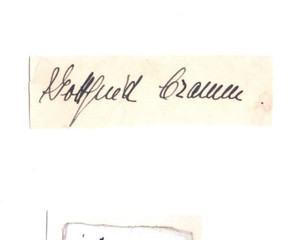 Gottfried Cramm.